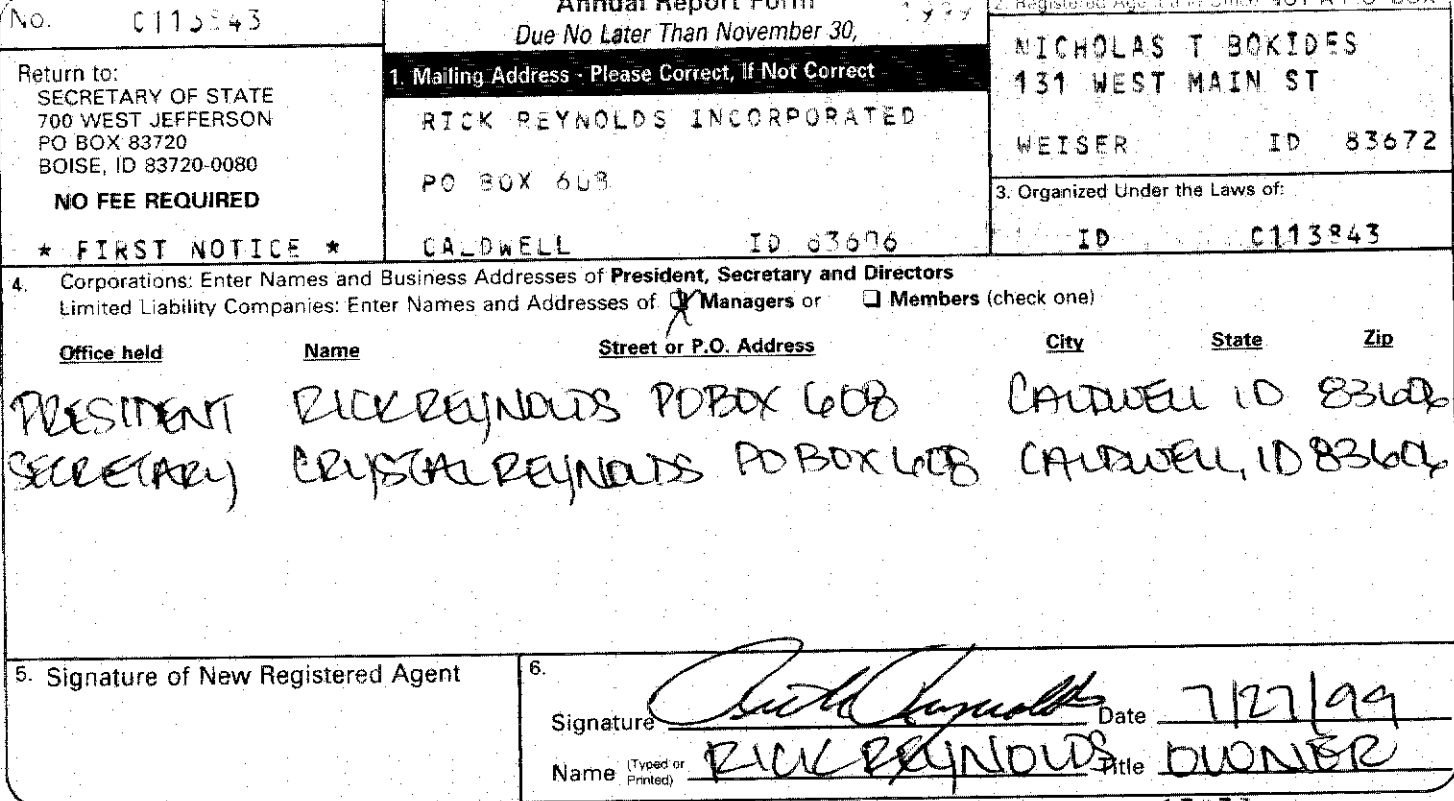 No.
Annual Report Form
Due No Later Than November 30,
Return to:
SECRETARY OF STATE
700 WEST JEFFERSON
PO BOX 83720
BOISE, ID 83720-0080
NO FEE REQUIRED
* FIRST NOTICE *
1. Mailing Address - Please Correct, If Not Correct
RICK REYNOLDS INCORPORATED
PO BOX 608
CALDWELL ID
NICHOLAS T BOKIDES
131 WEST MAIN ST
WEISER ID 83672
3. Organized Under the Laws of:
ID C113843
4. Corporations: Enter Names and Business Addresses of President, Secretary and Directors
Limited Liability Companies: Enter Names and Addresses of Managers or Members (check one)
Office held Name Street or P.O. Address City State Zip
PRESIDENT RICK REYNOLDS PO BOX 608 CALDWELL ID 83606
SECRETARY CRYSTAL REYNOLDS PO BOX 608 CALDWELL, ID 83606
5. Signature of New Registered Agent
6.
Signature Rick Reynolds Date 7/27/99
Name (Typed or Printed) RICK REYNOLDS Title OWNER